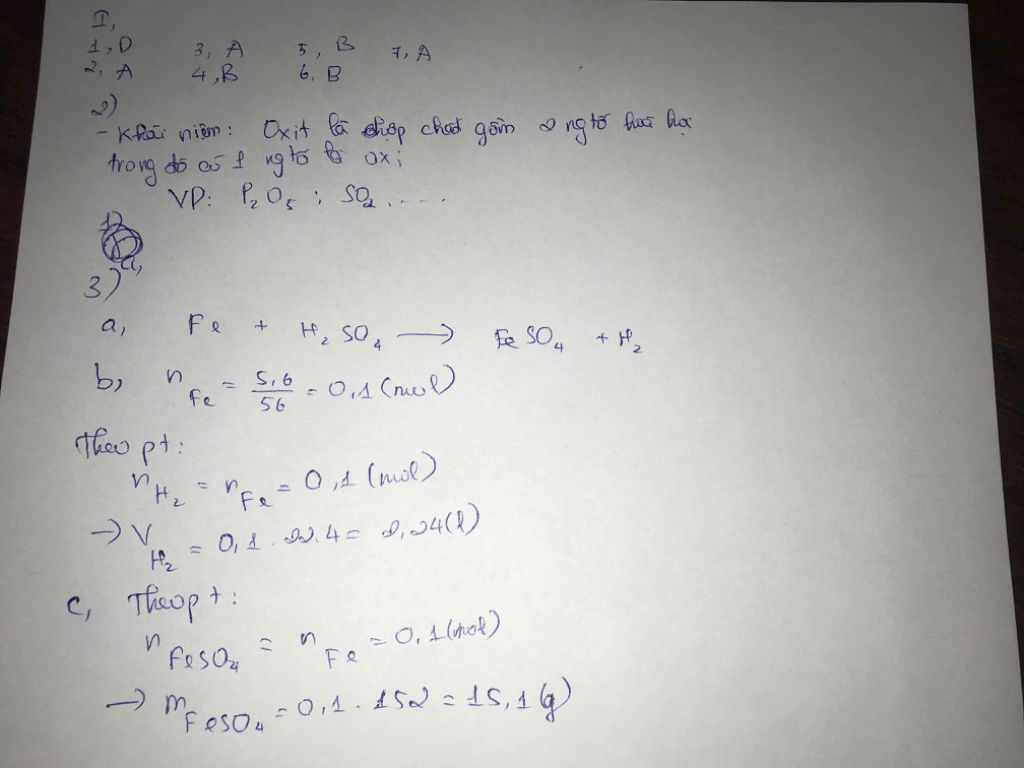 I,
1, D 3, A 5, B 7, A
2, A 4, B 6, B
2)
- Khái niệm: Oxit là hợp chất gồm 2 ng tố hoá học
trong đó có 1 ng tố là oxi
VD: P₂O₅ ; SO₂ ....
3)
a, Fe + H₂SO₄ → FeSO₄ + H₂
b, n Fe = 5,6/56 = 0,1 (mol)
Theo pt:
n H₂ = n Fe = 0,1 (mol)
→ V H₂ = 0,1 . 22.4 = 2,24(l)
c, Theo pt:
n FeSO₄ = n Fe = 0,1 (mol)
→ m FeSO₄ = 0,1 . 152 = 15,1 (g)